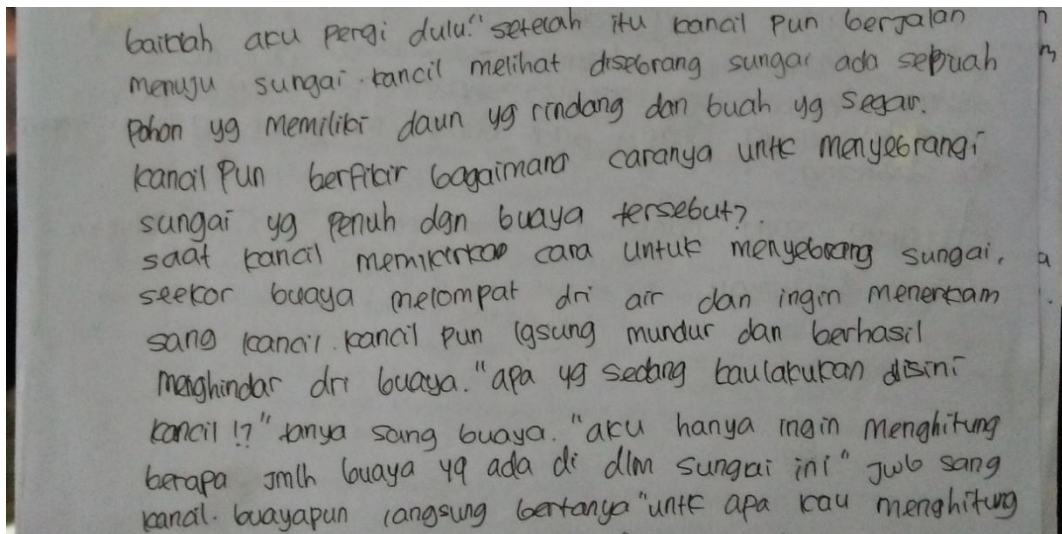 baiklah aku pergi dulu." setelah itu kancil pun berjalan
menuju sungai. kancil melihat disebrang sungai ada sebuah
Pohon yg memiliki daun yg rindang dan buah yg segar.
kancil Pun berfikir bagaimana caranya untk menyebrangi
sungai yg penuh dgn buaya tersebut?.
saat kancil memikirkan cara untuk menyebrang sungai,
seekor buaya melompat dri air dan ingin menerkam
sang kancil. kancil pun lgsung mundur dan berhasil
menghindar dri buaya. "apa yg sedang kaulakukan disini
kancil !?" tanya sang buaya. "aku hanya ingin menghitung
berapa jmlh buaya yg ada di dlm sungai ini" jwb sang
kancil. buayapun langsung bertanya "untk apa kau menghitung